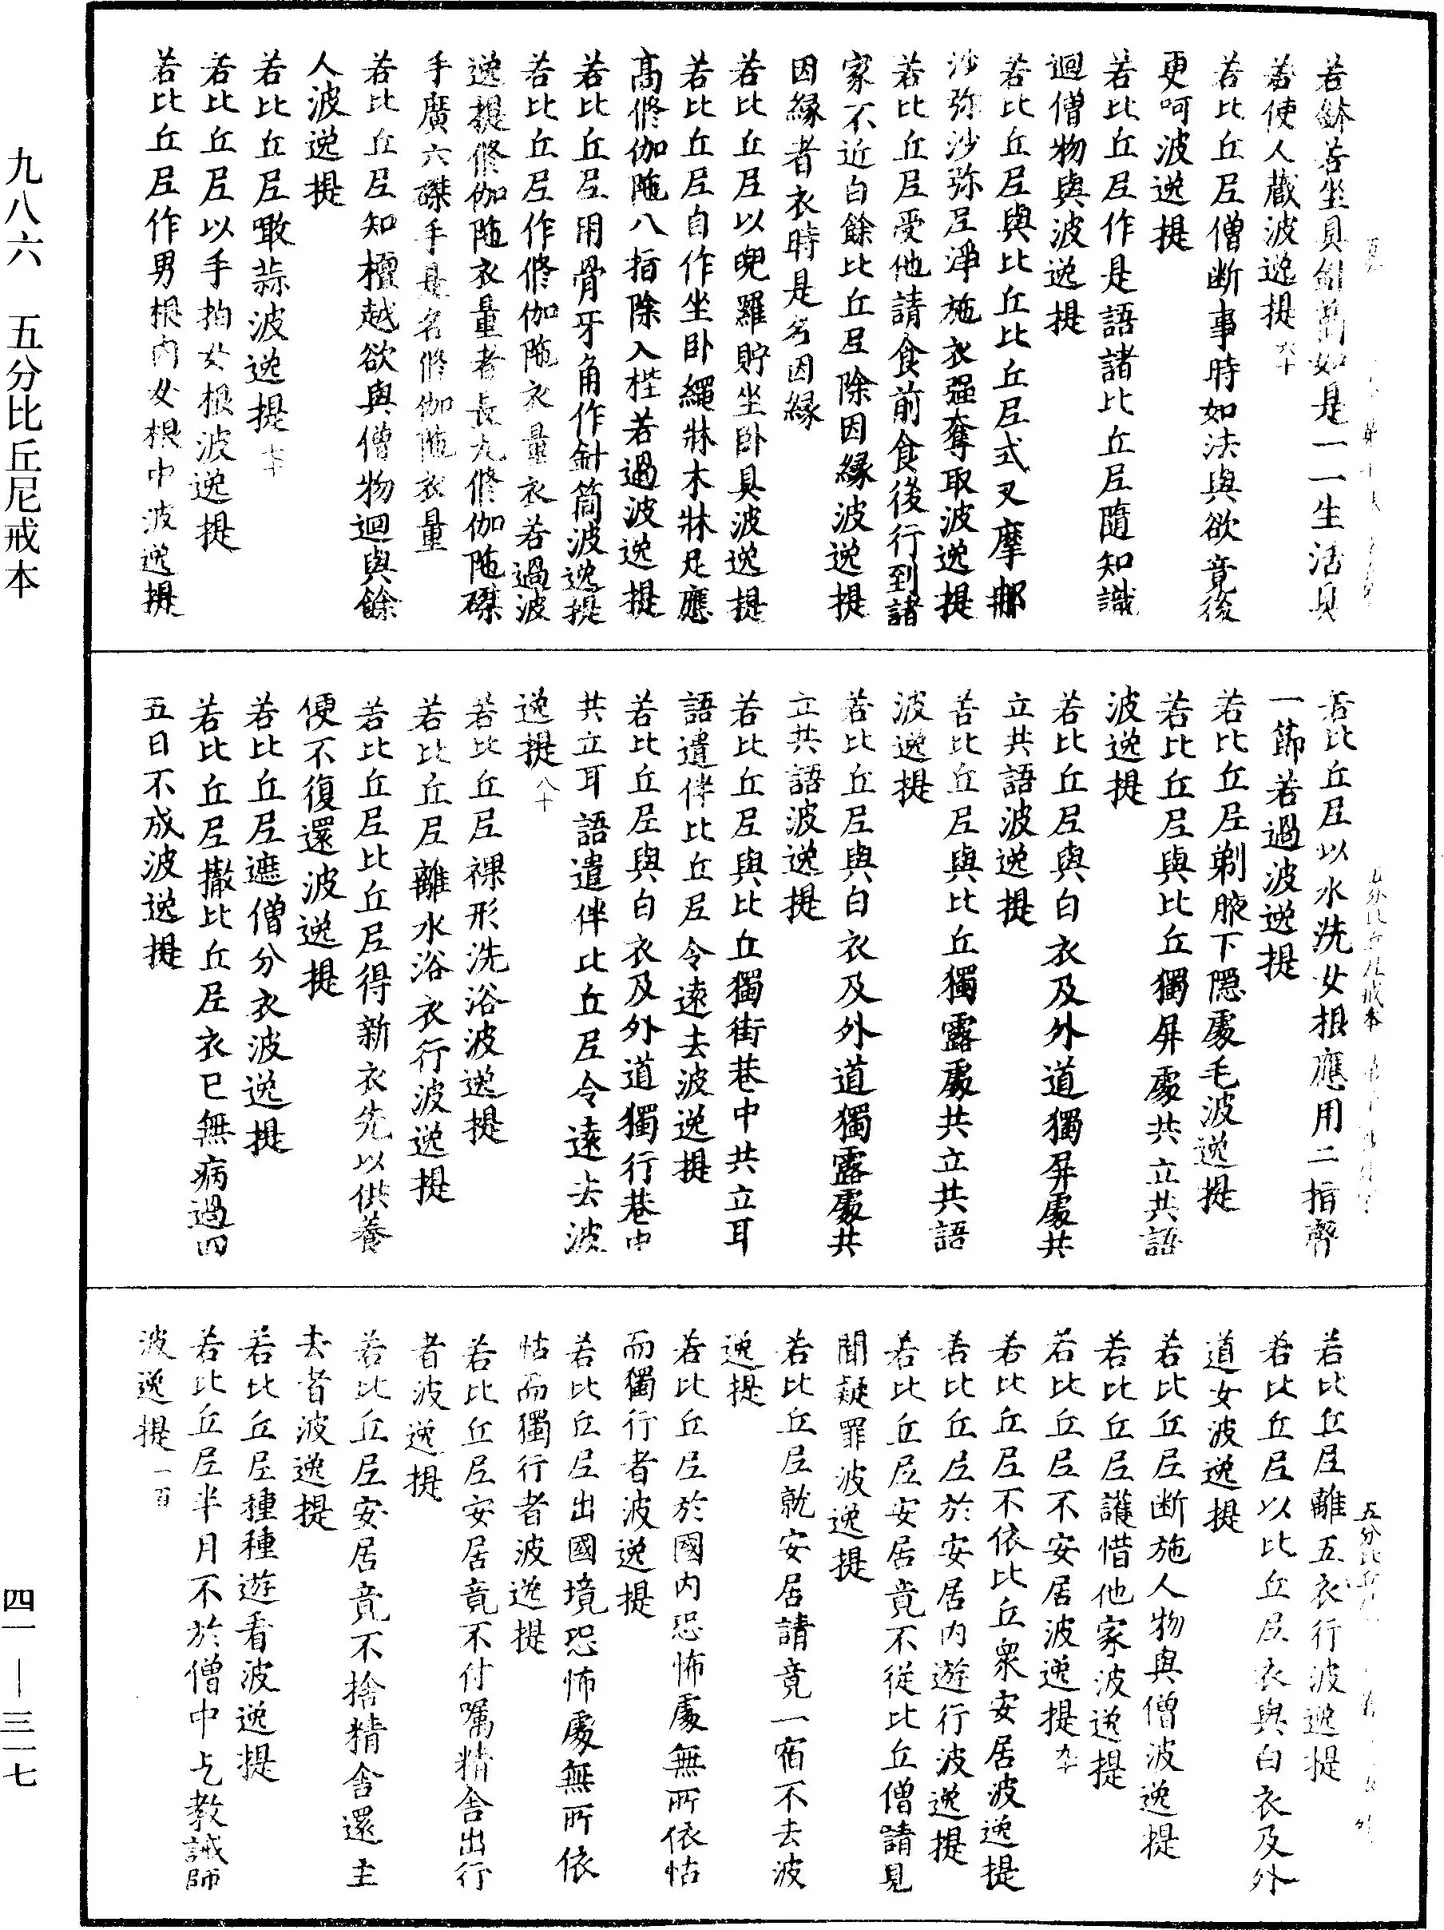 九八六　五分比丘尼戒本
若鉢若坐具針筩如是一一生活具
若使人藏波逸提六十
若比丘尼僧断事時如法與欲竟後
更呵波逸提
若比丘尼作是語諸比丘尼隨知識
迴僧物與波逸提
若比丘尼與比丘比丘尼式叉摩那
沙弥沙弥尼淨施衣强奪取波逸提
若比丘尼受他請食前食後行到諸
家不近白餘比丘尼除因緣波逸提
因緣者衣時是名因緣
若比丘尼以兜羅貯坐卧具波逸提
若比丘尼自作坐卧繩牀木牀足應
高脩伽陁八指除入梐若過波逸提
若比丘尼用骨牙角作針筒波逸提
若比丘尼作脩伽陁衣量衣若過波
逸提脩伽陁衣量者長九脩伽陁磔
手廣六磔手是名脩伽陁衣量
若比丘尼知檀越欲與僧物迴與餘
人波逸提
若比丘尼噉蒜波逸提七十
若比丘尼以手拍女根波逸提
若比丘尼作男根内女根中波逸提
若比丘尼以水洗女根應用二指齊
一節若過波逸提
若比丘尼剃腋下隱處毛波逸提
若比丘尼與比丘獨屏處共立共語
波逸提
若比丘尼與白衣及外道獨屏處共
立共語波逸提
若比丘尼與比丘獨露處共立共語
波逸提
若比丘尼與白衣及外道獨露處共
立共語波逸提
若比丘尼與比丘獨街巷中共立耳
語遣伴比丘尼令遠去波逸提
若比丘尼與白衣及外道獨行巷中
共立耳語遣伴比丘尼令遠去波
逸提八十
若比丘尼裸形洗浴波逸提
若比丘尼離水浴衣行波逸提
若比丘尼比丘尼得新衣先以供養
便不復還波逸提
若比丘尼遮僧分衣波逸提
若比丘尼撒比丘尼衣已無病過四
五日不成波逸提
若比丘尼離五衣行波逸提
若比丘尼以比丘尼衣與白衣及外
道女波逸提
若比丘尼断施人物與僧波逸提
若比丘尼護惜他家波逸提
若比丘尼不安居波逸提九十
若比丘尼不依比丘衆安居波逸提
若比丘尼於安居内遊行波逸提
若比丘尼安居竟不從比丘僧請見
聞疑罪波逸提
若比丘尼就安居請竟一宿不去波
逸提
若比丘尼於國内恐怖處無所依怙
而獨行者波逸提
若比丘尼出國境恐怖處無所依
怙而獨行者波逸提
若比丘尼安居竟不付囑精舍出行
者波逸提
若比丘尼安居竟不捨精舍還主
去者波逸提
若比丘尼種種遊看波逸提
若比丘尼半月不於僧中乞教誡師
波逸提一百
四一—三一七